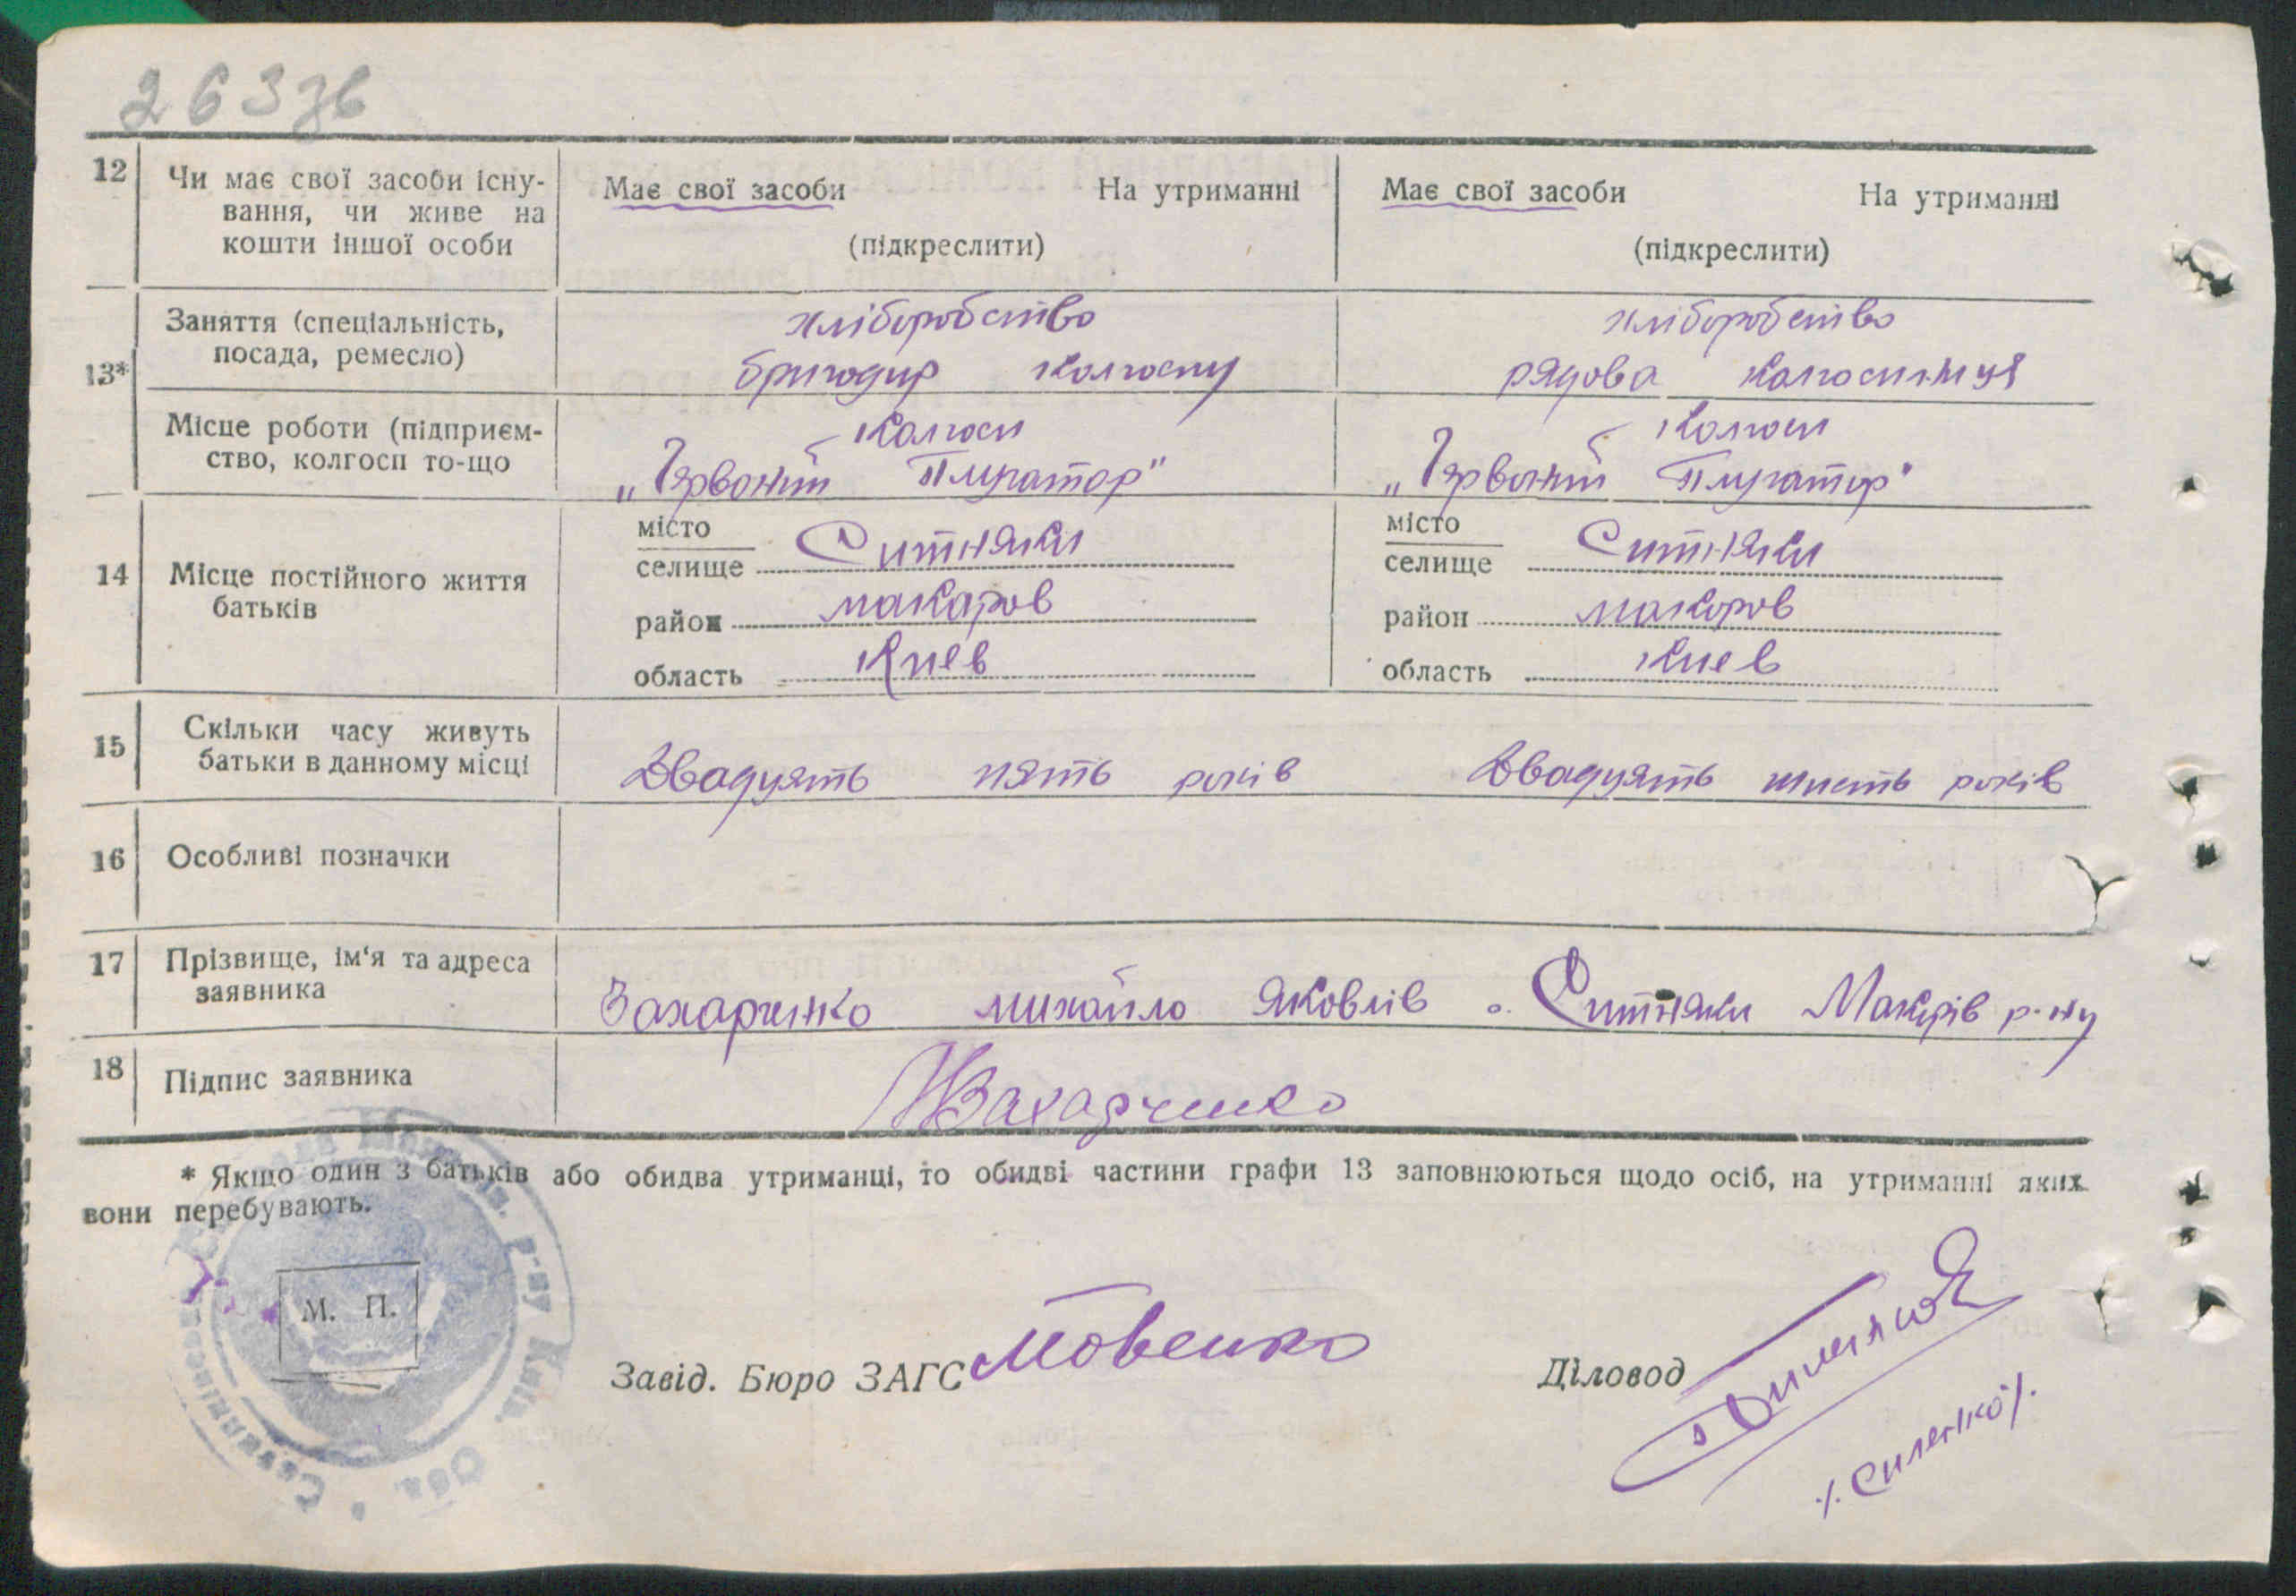 263 зв
12 Чи має свої засоби існу- Має свої засоби На утриманні Має свої засоби На утриманні
вання, чи живе на
кошти іншої особи (підкреслити) (підкреслити)
13* Заняття (спеціальність, хліборобство хліборобство
посада, ремесло) бригодир колгоспу рядова колгоспниця
Місце роботи (підприєм- Колгосп Колгосп
ство, колгосп то-що „Червоний Плугатор" „Червоний Плугатор"
14 Місце постійного життя
батьків
місто
селище Ситняки
район макаров
область Киев
місто
селище Ситняки
район макоров
область Киев
15 Скільки часу живуть
батьки в данному місці Двадцять пять років Двадцять шисть років
16 Особливі позначки
17 Прізвище, ім'я та адреса
заявника Захарченко михайло Яковлів с. Ситняки Макарів р-ну
18 Підпис заявника МЗахарченко
* Якщо один з батьків або обидва утриманці, то обидві частини графи 13 заповнюються щодо осіб, на утриманні яких
вони перебувають.
М. П.
р-ну Київ. Обл.
Завід. Бюро ЗАГС Мовенко
Діловод
/.Силенко/.